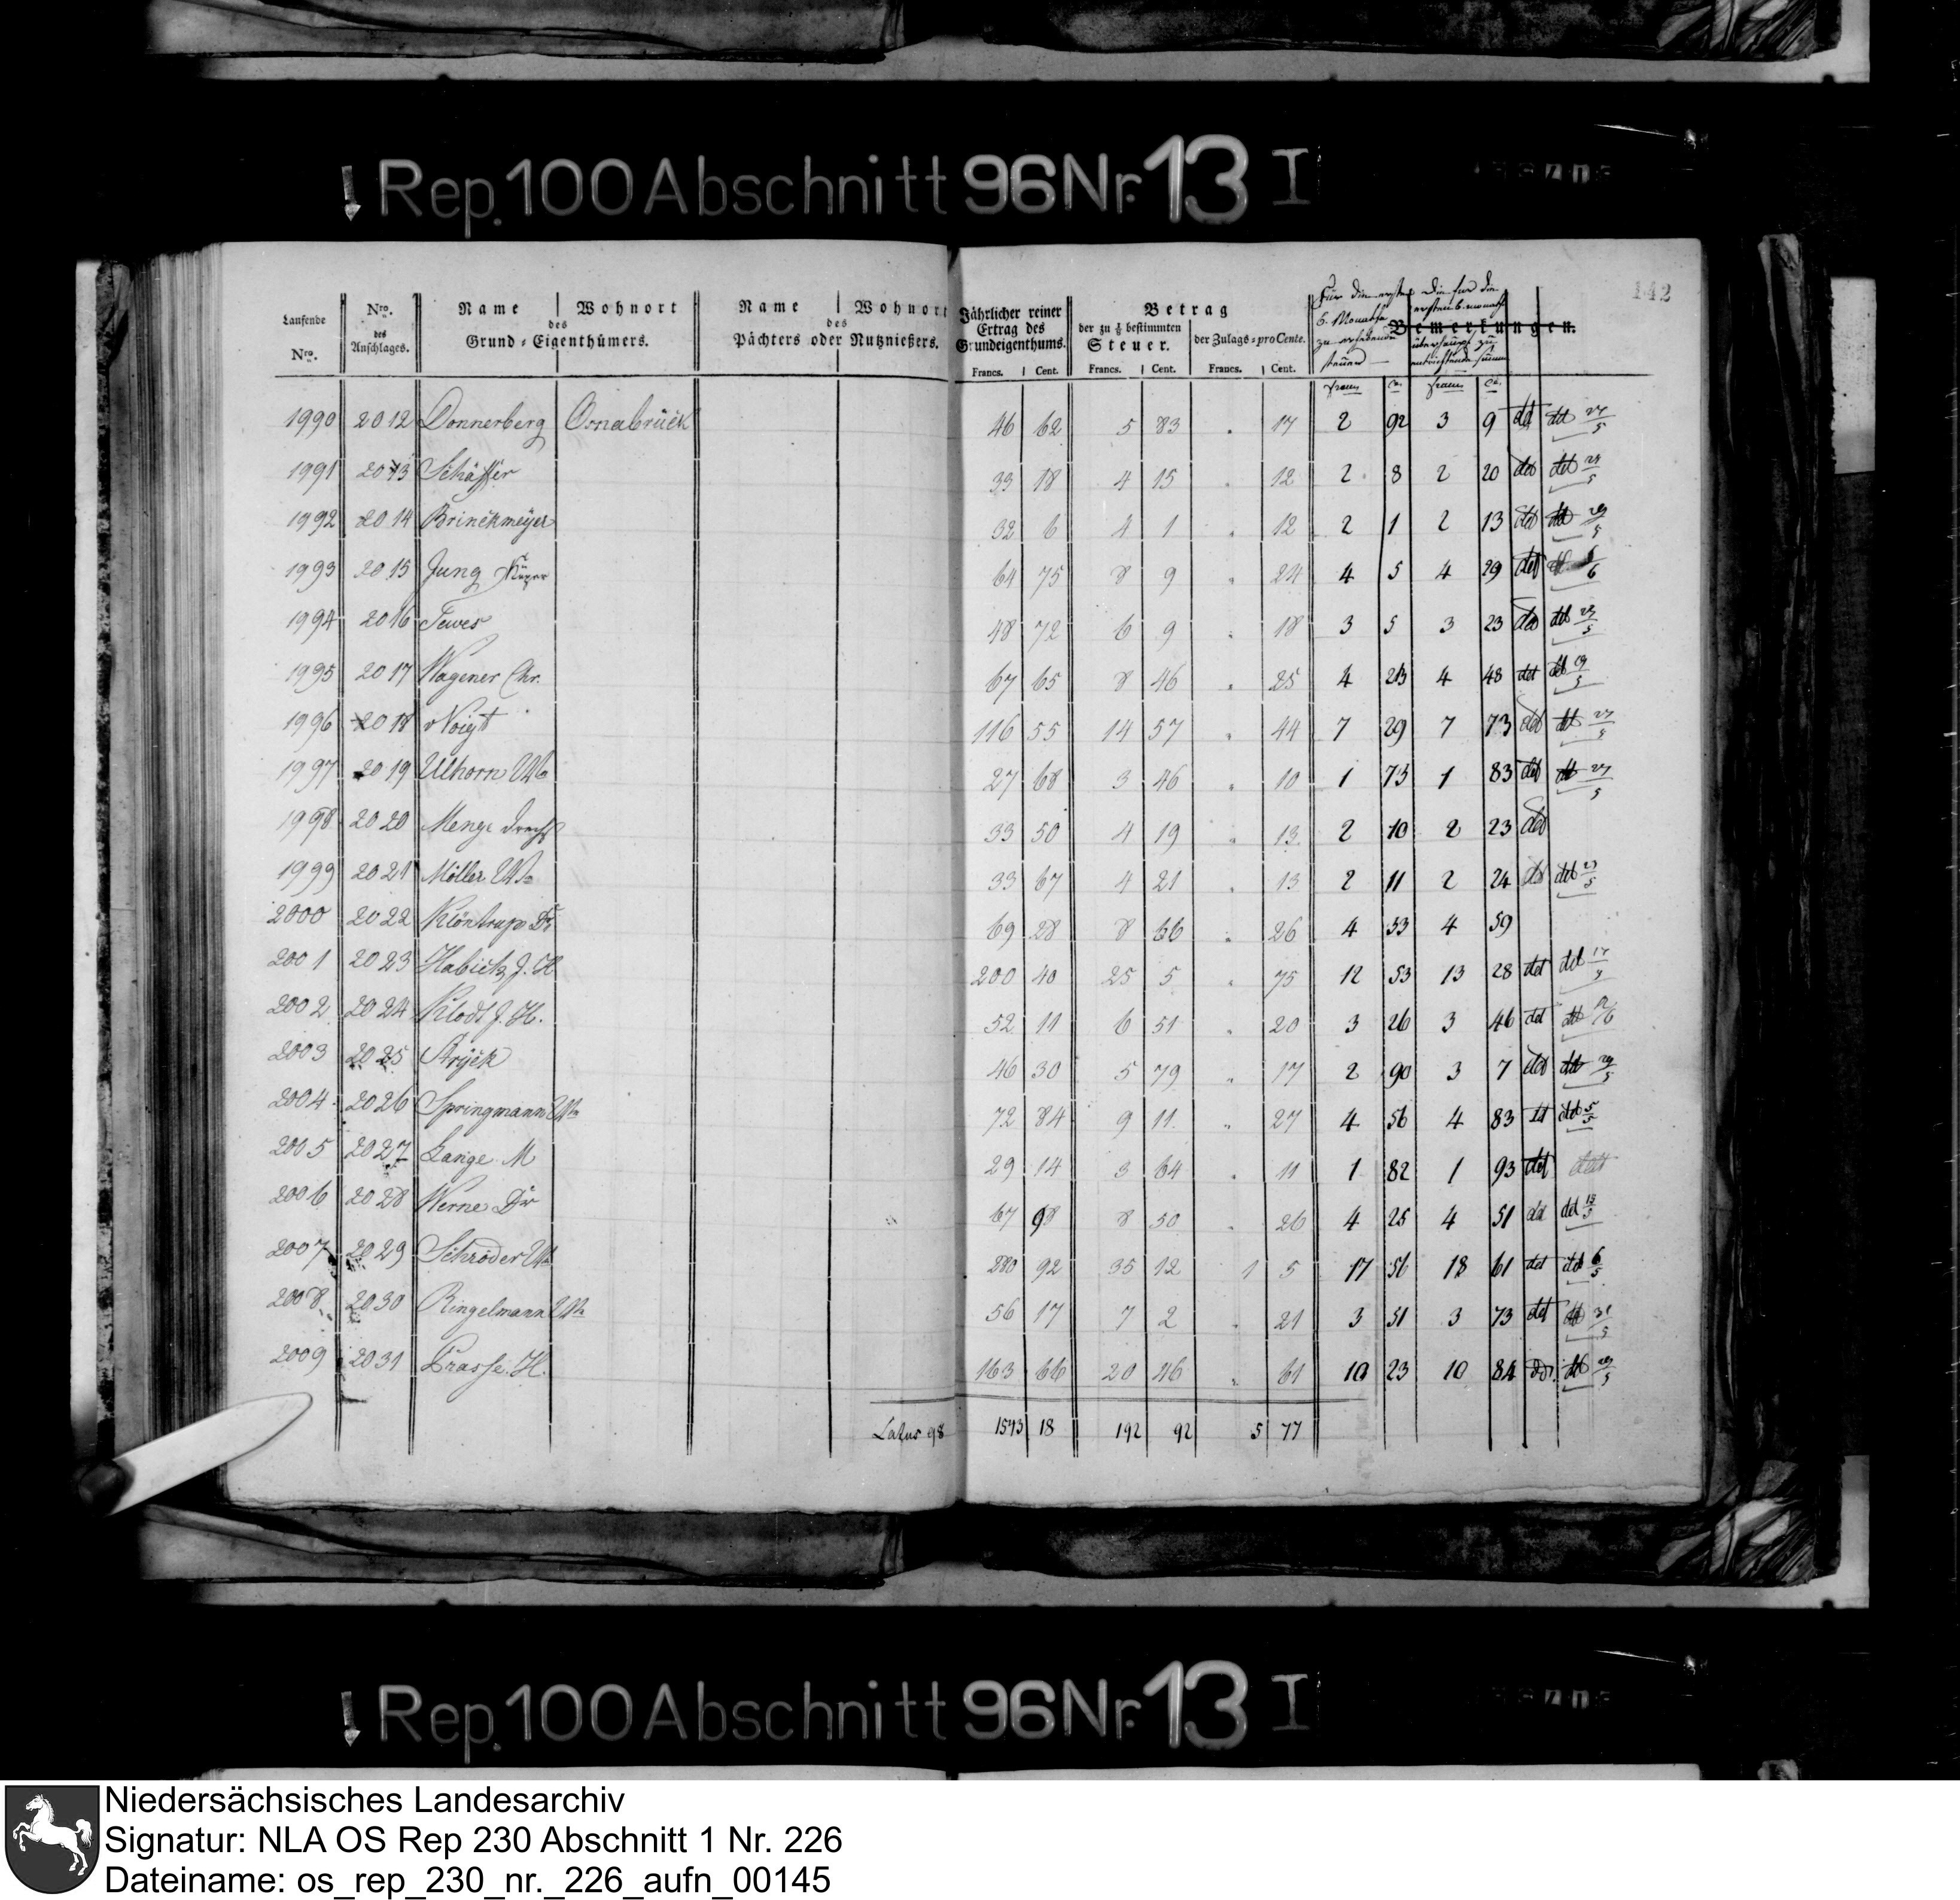 Rep. 100 Abschnitt 96 Nr. 13 I
142
Laufende Nro. Nro. des Anschlages. Name Wohnort des Grund-Eigenthümers. Name Wohnort des Pächters oder Nutznießers. Jährlicher reiner Ertrag des Grundeigenthums. Betrag der zu 1/8 bestimmten Steuer. der Zulags-pro Cente. Bemerkungen.
Für die ersten 6. Monathe zu erhebende Steuer
Die für die ersten 6. Monathe überhaupt zu entrichtende Summe
Francs. Cent. Francs. Cent. Francs. Cent. Francs Ce. Francs Ce.
1990 2012 Donnerberg Osnabrück 46 62 5 83 . 17 2 92 3 9 det det 27/5
1991 2013 Schäffer 33 18 4 15 . 12 2 8 2 20 det det 28/5
1992 2014 Brinckmeyer 32 6 4 1 . 12 2 1 2 13 det det 29/5
1993 2015 Jung 64 75 8 9 " 24 4 5 4 29 det
1994 2016 Tewes 48 72 6 9 . 18 3 5 3 23 det det 23/5
1995 2017 Wagener Chr. 67 65 8 46 . 25 4 23 4 48 det det 19/5
1996 2018 Voigt 116 55 14 57 " 44 7 29 7 73 det det 27/5
1997 2019 Ulhorn Ww 27 68 3 46 " 10 1 73 1 83 det det 27/5
1998 2020 Menge 33 50 4 19 " 13 2 10 2 23 det
1999 2021 Möller Ww 33 67 4 21 . 13 2 11 2 24 det det 23/5
2000 2022 Klöntrup Dr 69 28 8 66 " 26 4 33 4 59
2001 2023 Habicht J. H 200 40 25 5 " 75 12 53 13 28 det det
2002 2024 Klodt J. H. 52 11 6 51 . 20 3 26 3 46 det det
2003 2025 Stryck 46 30 5 79 " 17 2 90 3 7 det det 29/5
2004 2026 Springmann Ww 72 84 9 11 " 27 4 56 4 83 det det 5/5
2005 2027 Lange M 29 14 3 64 . 11 1 82 1 93 det dett
2006 2028 Werne Dr 67 98 8 50 . 26 4 25 4 51 det det 15/5
2007 2029 Schröder Ww 280 92 35 12 1 5 17 56 18 61 det det 6/5
2008 2030 Ringelmann Ww 56 17 7 2 " 21 3 51 3 73 det det 31/5
2009 2031 Grasse. H. 163 66 20 46 " 61 10 23 10 84 det det 29/5
Latus 98 1543 18 192 92 5 77
Rep. 100 Abschnitt 96 Nr. 13 I
Niedersächsisches Landesarchiv
Signatur: NLA OS Rep 230 Abschnitt 1 Nr. 226
Dateiname: os_rep_230_nr._226_aufn_00145